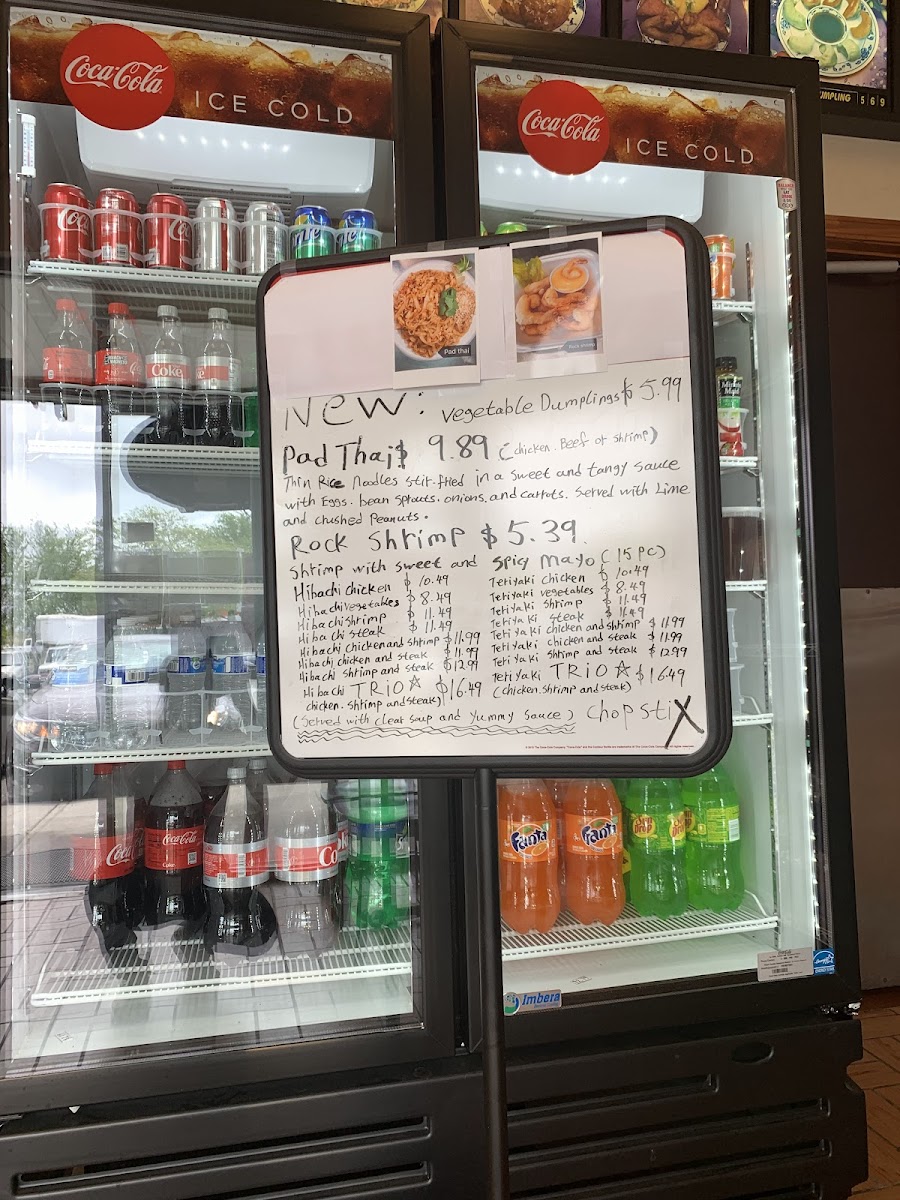 Coca-Cola
ICE COLD
Coca-Cola
ICE COLD
DUMPLING 5 6 9
Pad thai
Rock shrimp
New: Vegetable Dumplings $ 5.99
Pad Thai $ 9.89 (chicken. Beef or shrimp)
Thin Rice Noodles stir-fried in a sweet and tangy sauce
with Eggs. bean sprouts. onions. and carrots. Served with Lime
and crushed Peanuts.
Rock Shrimp $ 5.39.
Shrimp with sweet and Spicy Mayo (15 PC)
Hibachi chicken $ 10.49
Hibachi vegetables $ 8.49
Hibachi shrimp $ 11.49
Hibachi steak $ 11.49
Hibachi chicken and shrimp $ 11.99
Hibachi chicken and steak $ 11.99
Hibachi shrimp and steak $ 12.99
Hibachi TRIO ☆ $ 16.49
chicken. shrimp and steak)
Teriyaki chicken $ 10.49
Teriyaki vegetables $ 8.49
Teriyaki shrimp $ 11.49
Teriyaki steak $ 11.49
Teriyaki chicken and shrimp $ 11.99
Teriyaki chicken and steak $ 11.99
Teriyaki shrimp and steak $ 12.99
Teriyaki TRIO ☆ $ 16.49
(chicken. shrimp and steak)
(Served with clear soup and Yummy Sauce) Chopstix
Coke
Minute Maid
Coca-Cola
Coke
Fanta
Fanta
Imbera